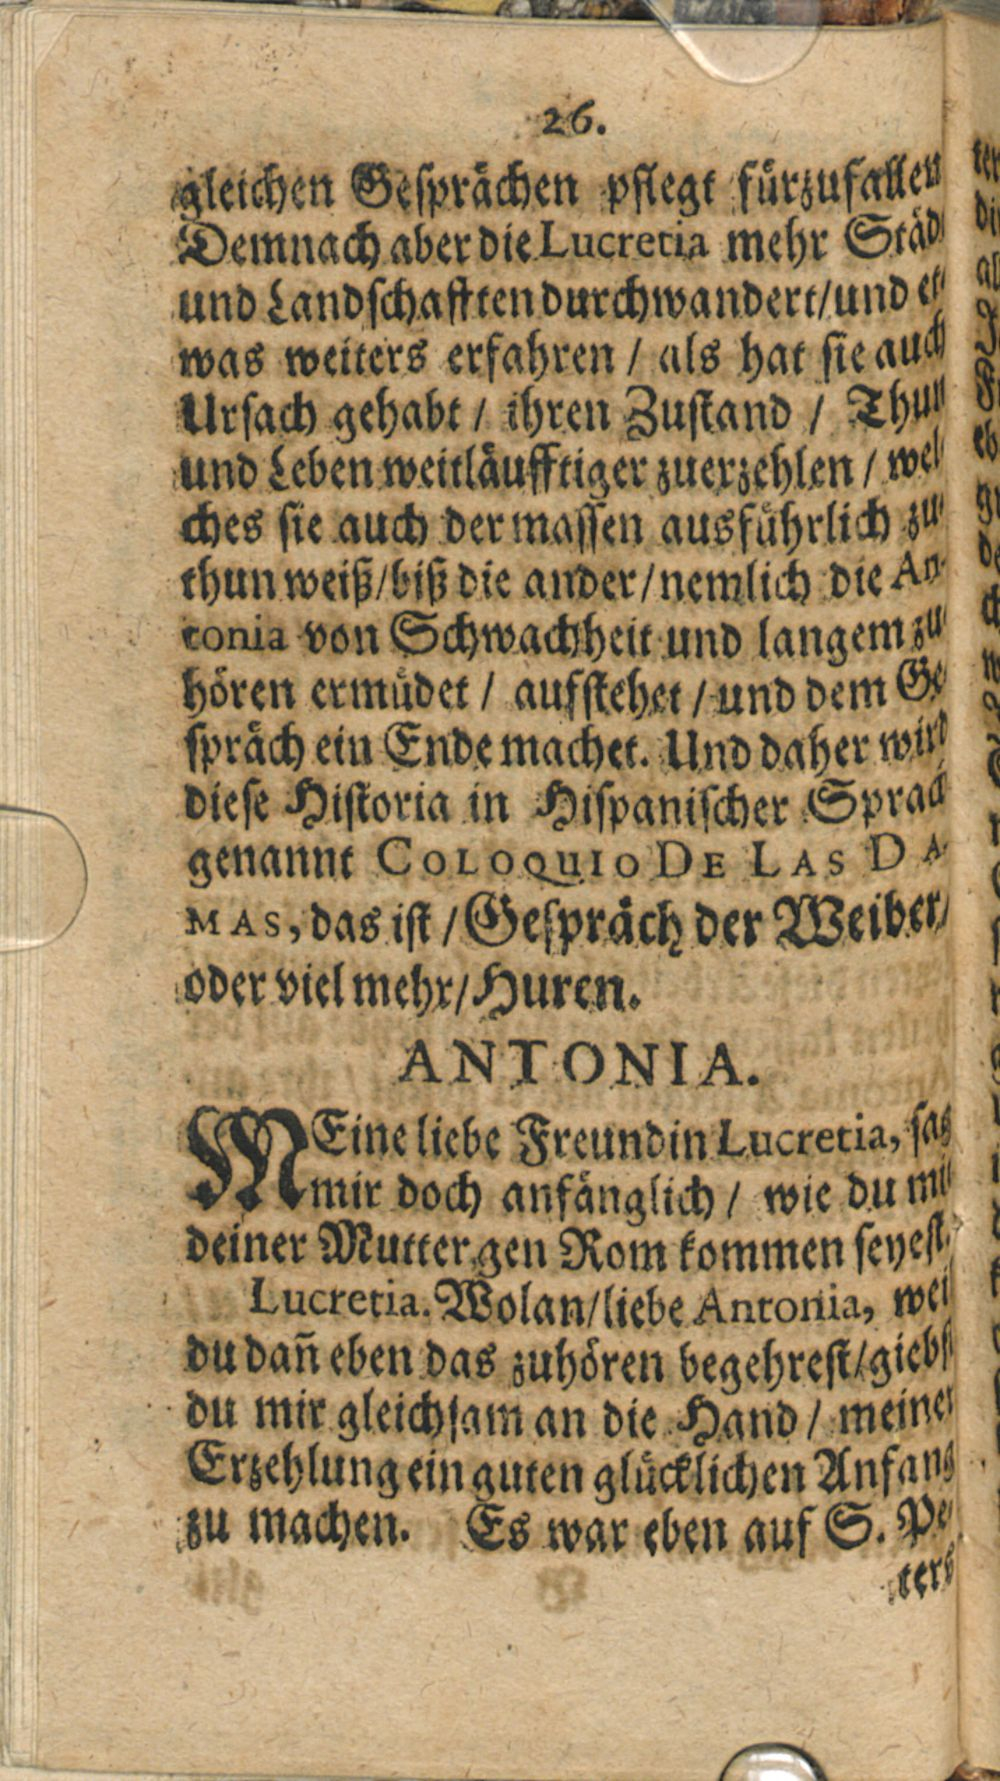 26.
gleichen Gesprächen pflegt fürzufallen
Demnach aber die Lucretia mehr Städ-
und Landschafften durchwandert/und et-
was weiters erfahren / als hat sie auch
Ursach gehabt / ihren Zustand / Thun
und Leben weitläufftiger zuerzehlen / wel-
ches sie auch der massen ausführlich zu-
thun weiß/biß die ander/nemlich die An-
tonia von Schwachheit und langem zu-
hören ermüdet / aufstehet / und dem Ge-
spräch ein Ende machet. Und daher wird
diese Historia in Hispanischer Sprach
genannt COLOQUIO DE LAS DA-
MAS, das ist / Gespräch der Weiber/
oder viel mehr/Huren.
ANTONIA.
MEine liebe Freundin Lucretia, sag
mir doch anfänglich / wie du mit
deiner Mutter gen Rom kommen seyest.
Lucretia. Wolan/liebe Antonia, weil
du dañ eben das zuhören begehrest/giebst
du mir gleichsam an die Hand / meiner
Erzehlung ein guten glücklichen Anfang
zu machen. Es war eben auf S. Pe-
ters